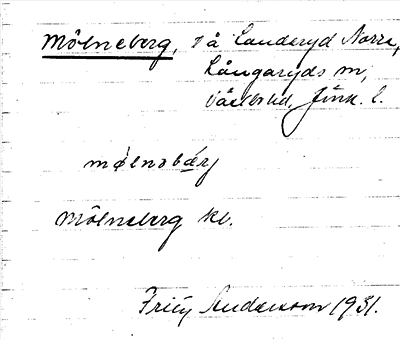 Mölneberg, T å Landeryd Norra,
Långaryds sn,
Västbo hd, Jönk. l.
mǿlnəbær̨j
Mölneberg kb.
Fritz Andersson 1931.